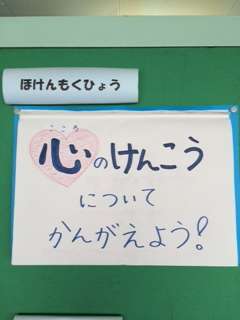 ほけんもくひょう
こころ
心のけんこう
について
かんがえよう!